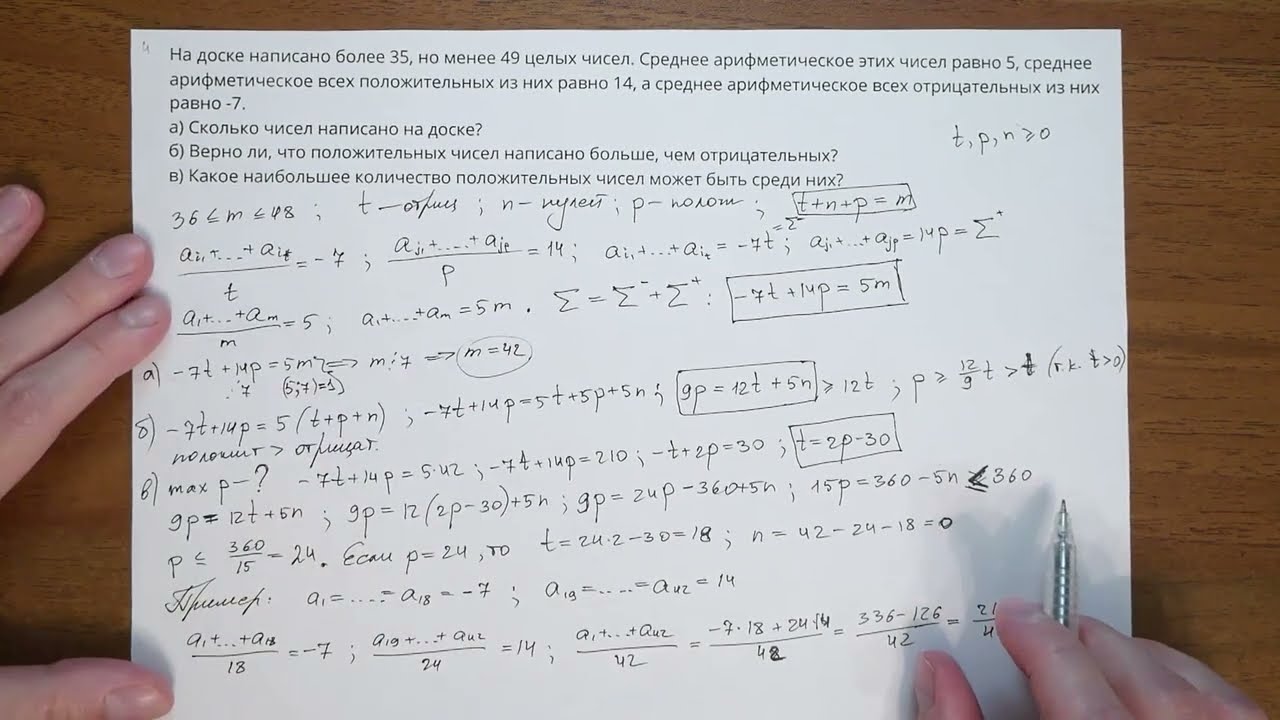 4
На доске написано более 35, но менее 49 целых чисел. Среднее арифметическое этих чисел равно 5, среднее
арифметическое всех положительных из них равно 14, а среднее арифметическое всех отрицательных из них
равно -7.
а) Сколько чисел написано на доске?
б) Верно ли, что положительных чисел написано больше, чем отрицательных?
в) Какое наибольшее количество положительных чисел может быть среди них?
t, p, n ≥ 0
36 ≤ m ≤ 48 ; t – отриц ; n – нулей ; p – полож ; t+n+p = m
(a_i₁+...+a_iₜ)/t = -7 ; (a_j₁+....+a_jₚ)/p = 14 ; a_i₁+...+a_iₜ = -7t = Σ⁻ ; a_j₁+...+a_jₚ = 14p = Σ⁺
(a₁+...+aₘ)/m = 5 ; a₁+...+aₘ = 5m . Σ = Σ⁻ + Σ⁺ : -7t + 14p = 5m
а) -7t + 14p = 5m ⟹ m ⋮ 7 ⟹ m = 42
⋮ 7 (5;7)=1
б) -7t+14p = 5(t+p+n) ; -7t+14p = 5t+5p+5n ; 9p = 12t + 5n ≥ 12t ; p ≥ 12/9 t > t (т.к. t>0)
полож > отрицат.
в) max p – ? -7t+14p = 5·42 ; -7t+14p = 210 ; -t+2p = 30 ; t = 2p-30
9p = 12t + 5n ; 9p = 12(2p-30)+5n ; 9p = 24p-360+5n ; 15p = 360-5n ≤ 360
p ≤ 360/15 = 24 . Если p = 24 , то t = 24·2-30 = 18 ; n = 42-24-18 = 0
Пример: a₁ = .... = a₁₈ = -7 ; a₁₉ = .... = a₄₂ = 14
(a₁+...+a₁₈)/18 = -7 ; (a₁₉+...+a₄₂)/24 = 14 ; (a₁+...+a₄₂)/42 = (-7·18 + 24·14)/42 = (336-126)/42 =